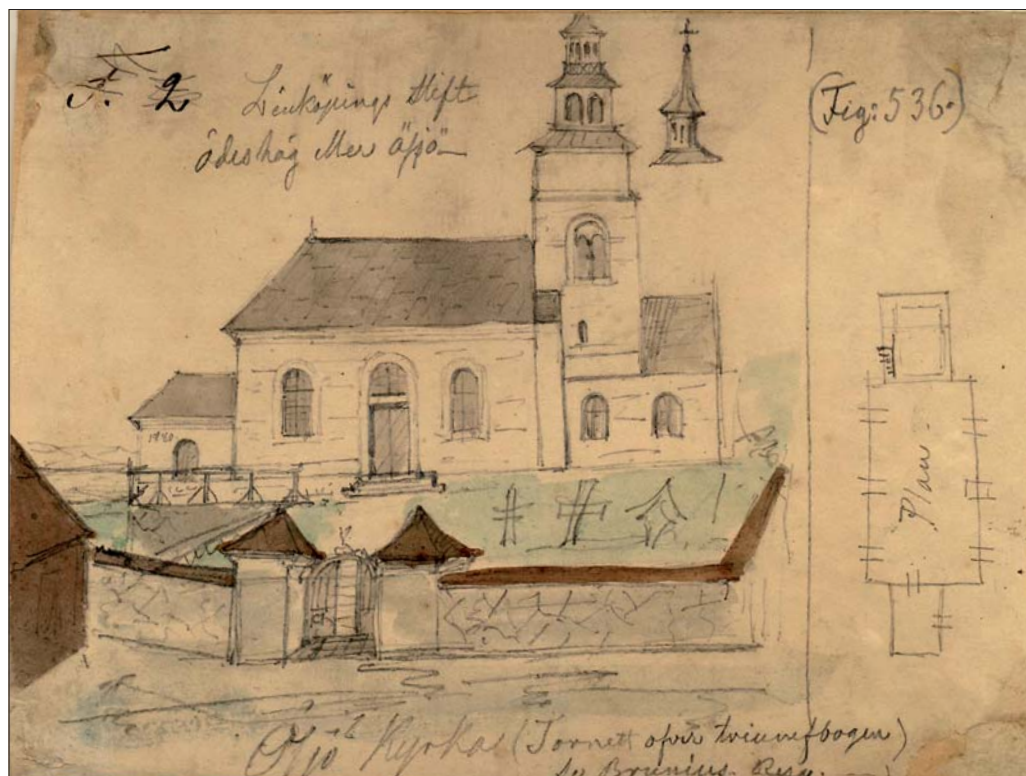 F. 2
Linköpings Stift
ödeshög eller öfjö
(Fig: 536.)
1780
Plan.
Öfjö Kyrka (Tornett öfver triumfbogen)
Se Brunius. Resa.